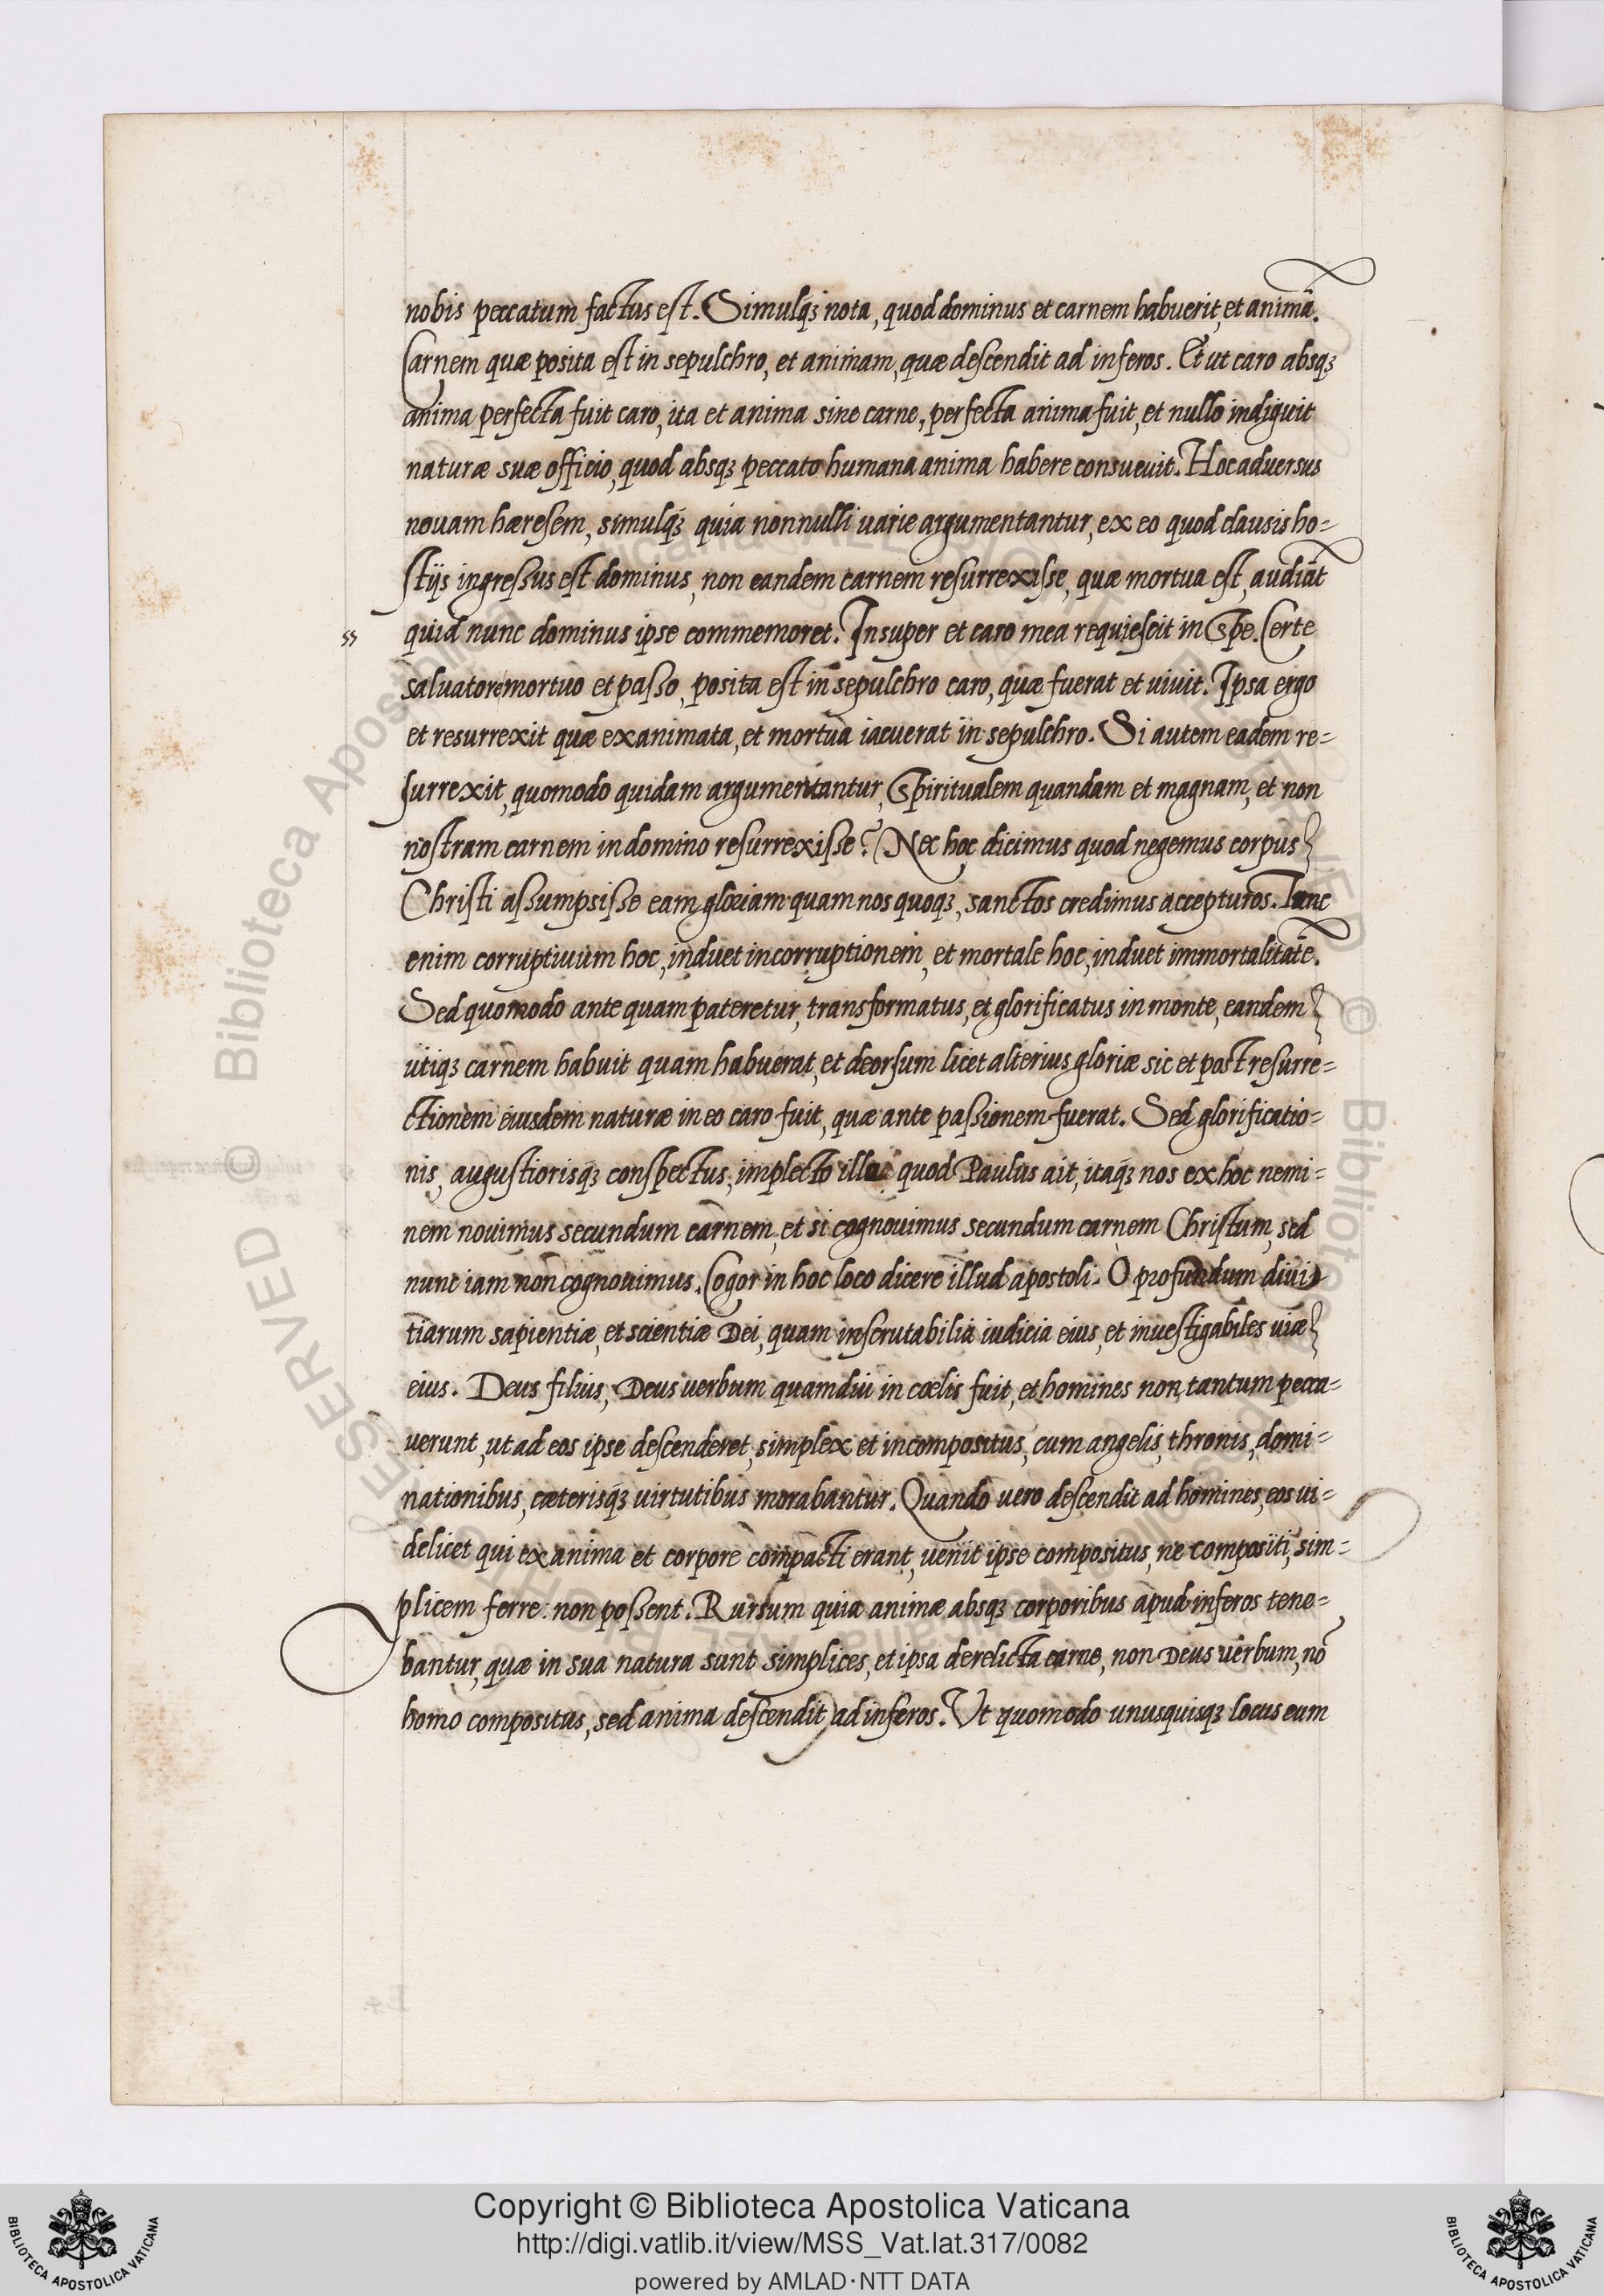 nobis peccatum factus est. Simulq́ꝫ nota, quod dominus et carnem habuerit, et animā.
Carnem quæ posita est in sepulchro, et animam, quæ descendit ad inferos. Et ut caro absqꝫ
anima perfecta fuit caro, ita et anima sine carne, perfecta anima fuit, et nullo indiguit
naturæ suæ officio, quod absqꝫ peccato humana anima habere consueuit. Hoc aduersus
nouam hæresem, simulq́ꝫ quia nonnulli uarie argumentantur, ex eo quod clausis ho=
stijs ingressus est dominus, non eandem carnem resurrexisse, quæ mortua est, audiāt
quid nunc dominus ipse commemoret. Insuper et caro mea requiescit in Spe. Certe
saluatore mortuo et passo, posita est in sepulchro caro, quæ fuerat et uiuit. Ipsa ergo
et resurrexit quæ exanimata, et mortua iacuerat in sepulchro. Si autem eadem re=
surrexit, quomodo quidam argumentantur, Spiritualem quandam et magnam, et non
nostram carnem in domino resurrexisse? Nec hoc dicimus quod negemus corpus
Christi assumpsisse eam gloriam quam nos quoqꝫ, sanctos credimus accepturos. Tunc
enim corruptiuum hoc, induet incorruptionem, et mortale hoc, induet immortalitatē.
Sed quomodo ante quam pateretur, transformatus, et glorificatus in monte, eandem
utiqꝫ carnem habuit quam habuerat, et deorsum licet alterius gloriæ sic et post resurre=
ctionem eiusdem naturæ in eo caro fuit, quæ ante passionem fuerat. Sed glorificatio=
nis, augustiorisq́ꝫ conspectus, implecto quod Paulus ait, itaq́ꝫ nos ex hoc nemi=
nem nouimus secundum carnem, et si cognouimus secundum carnem Christum, sed
nunc iam non cognouimus. Cogor in hoc loco dicere illud apostoli. O profundum diui
tiarum sapientiæ, et scientiæ Dei, quam inscrutabilia iudicia eius, et inuestigabiles uiæ
eius. Deus filius, Deus uerbum quamdiu in cœlis fuit, et homines non tantum pecca=
uerunt, ut ad eos ipse descenderet, simplex et incompositus, cum angelis, thronis, domi=
nationibus, cæterisq́ꝫ uirtutibus morabantur. Quando uero descendit ad homines, eos ui=
delicet qui ex anima et corpore compacti erant, uenit ipse compositus, ne compositi, sim=
plicem ferre non possent. Rursum quia animæ absqꝫ corporibus apud inferos tene=
bantur, quæ in sua natura sunt simplices, et ipsa derelicta carne, non Deus uerbum, nō
homo compositus, sed anima descendit ad inferos. Vt quomodo unusquisqꝫ locus eum
Copyright © Biblioteca Apostolica Vaticana
http://digi.vatlib.it/view/MSS_Vat.lat.317/0082
powered by AMLAD·NTT DATA